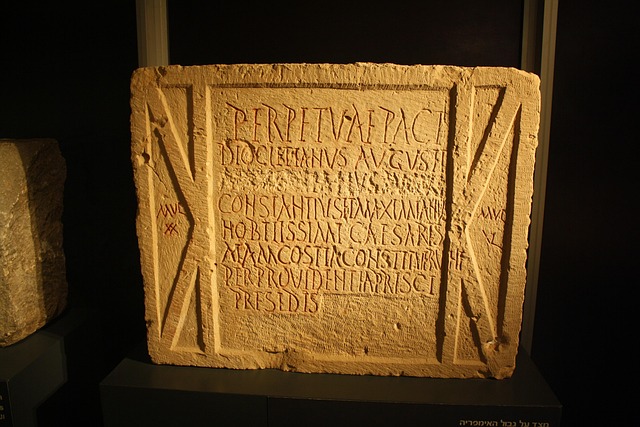 PERPETVAE PACI
DIOCLETIANVS AVGVSTI
CONSTANTIVS ET MAXIMIANVS
NOBILISSIMI CAESARES
ALAM COSTIA CONSTITVERVNT
PER PROVIDENTIA PRISCI
PRESIDIS
MVL
XX
MVL
XL
מצד על גבול האימפריה